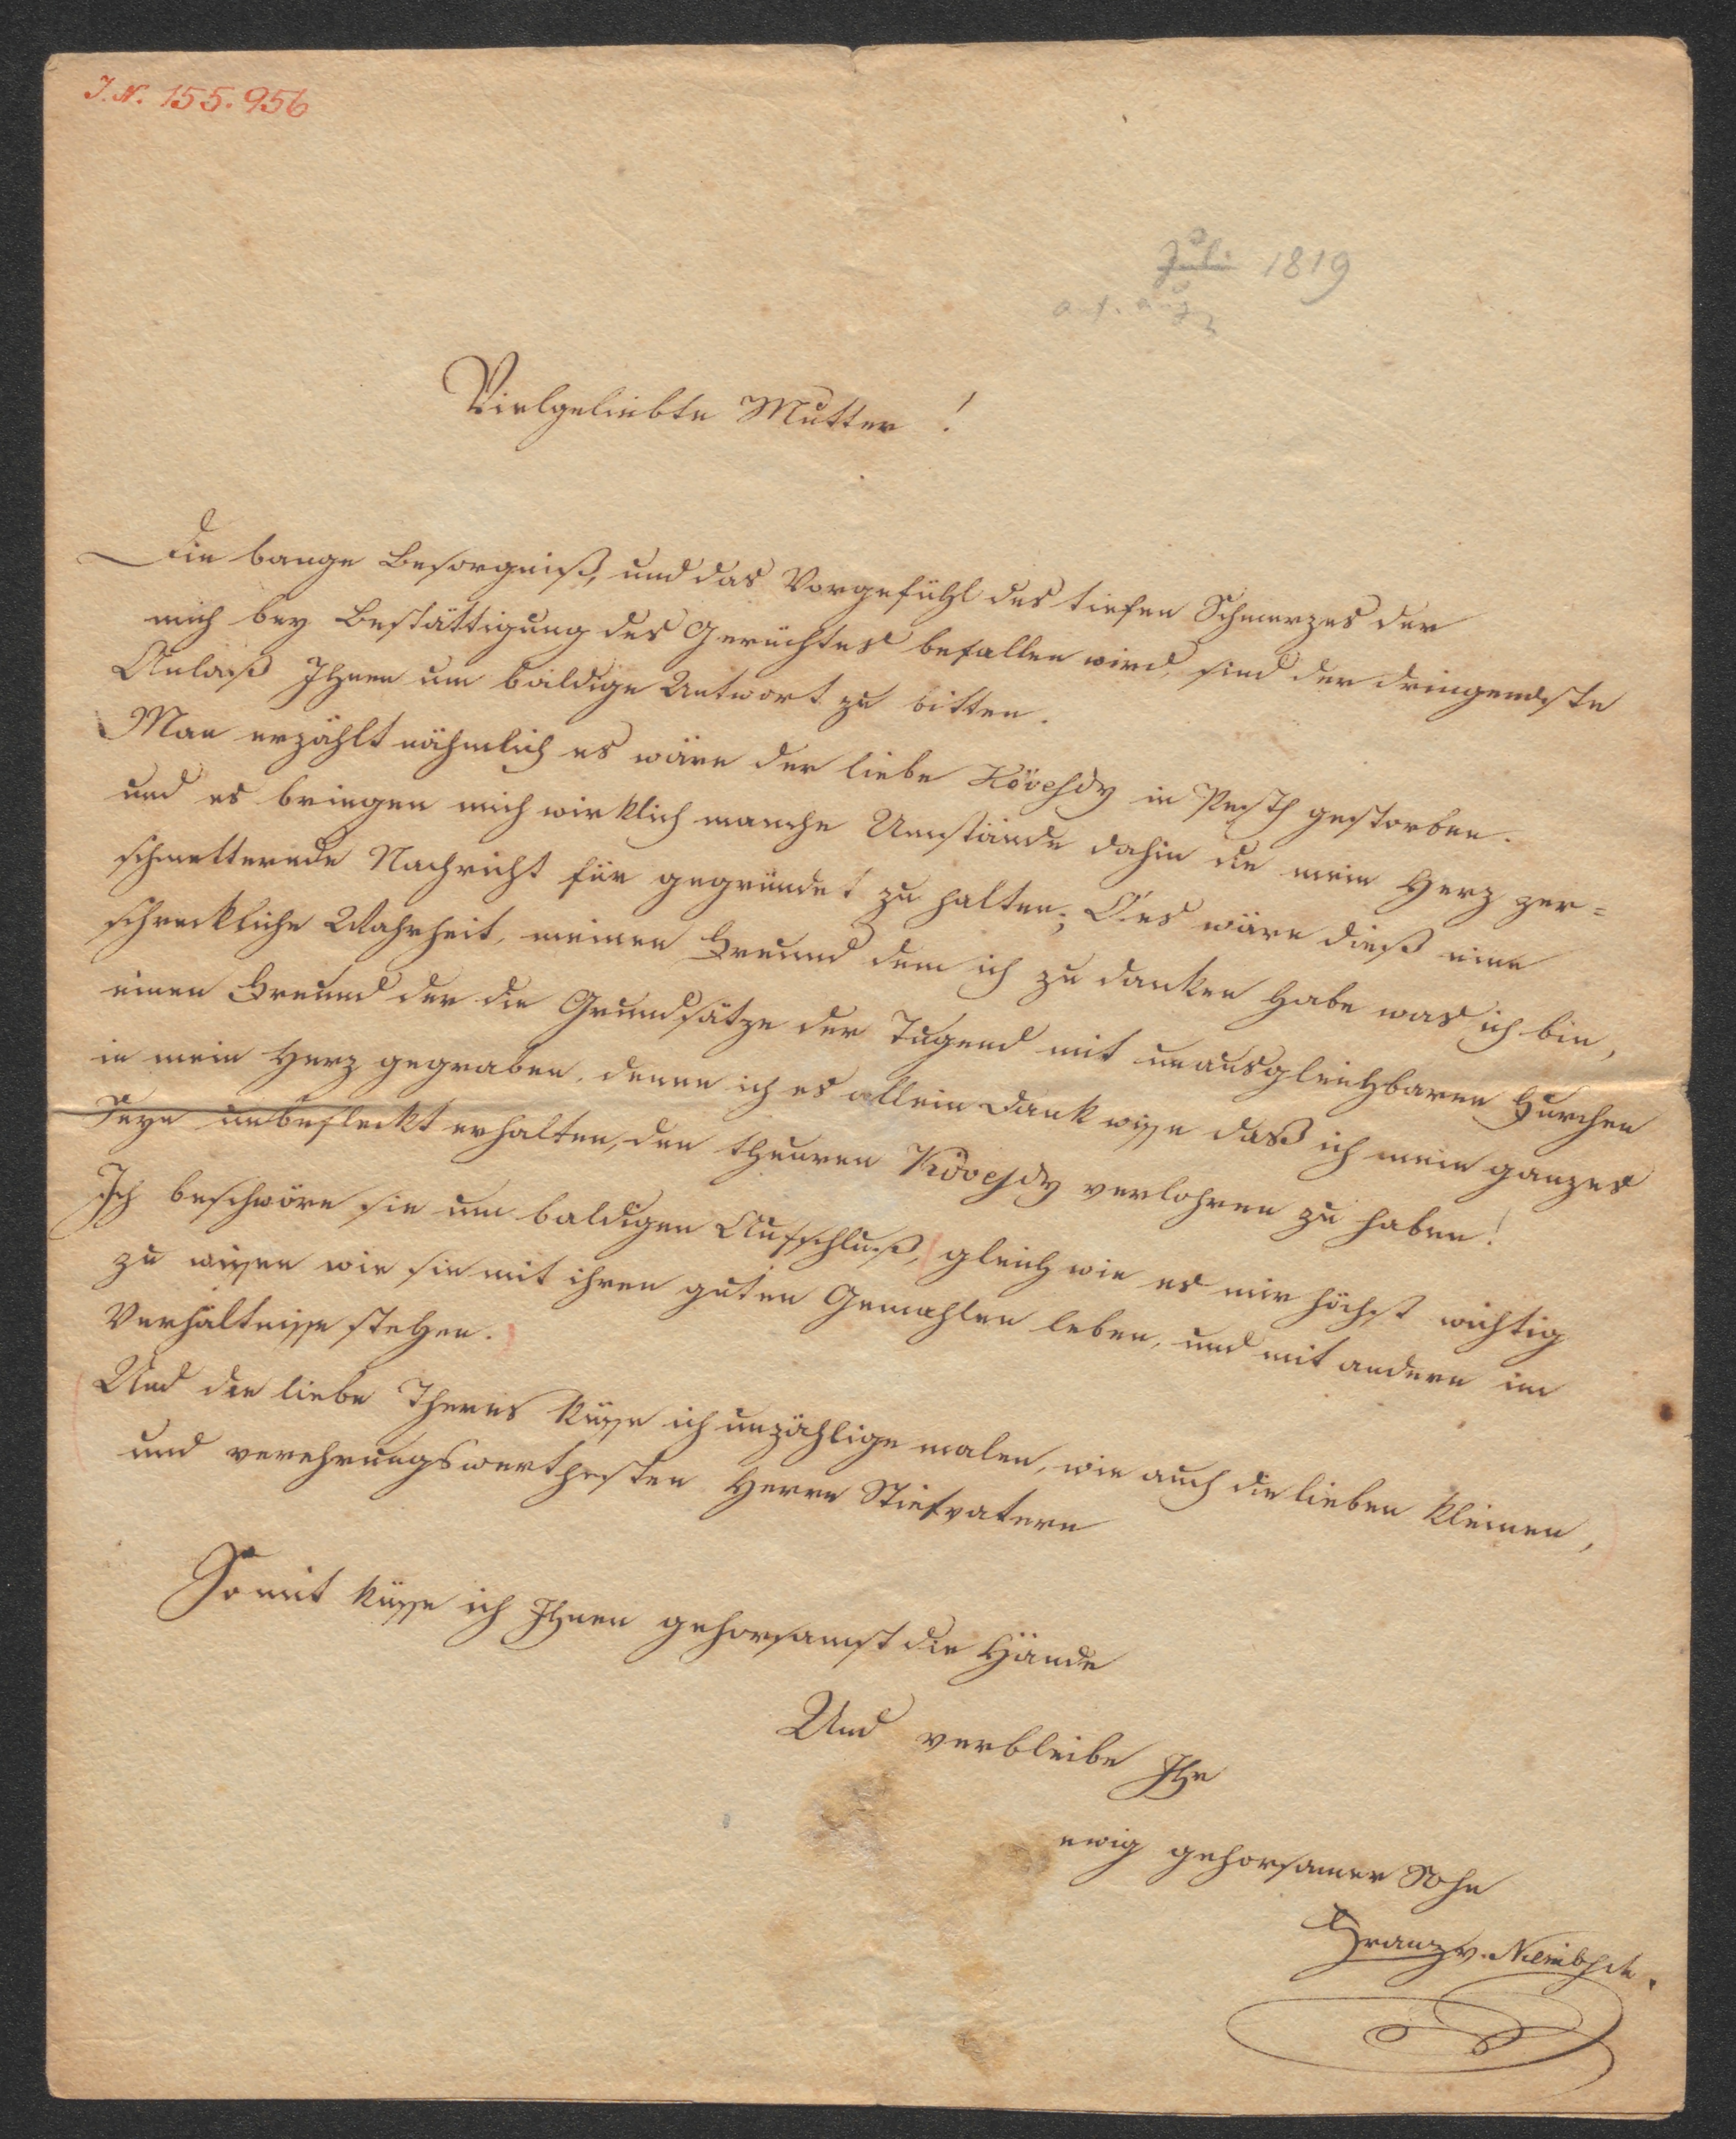 J. N. 155.956
Juli 1819
Vielgeliebte Mutter !
Die bange Besorgniß, und das Vorgefühl des tiefen Schmerzes der
mich bey Bestättigung des Gerüchtes befallen wird, sind der dringendste
Anlaß Ihnen um baldige Antwort zu bitten.
Man erzählt nähmlich es wäre der liebe Kövesdy in Pesth gestorben.
und es bringen mich wirklich manche Umstände dahin die mein Herz zer=
schmetternde Nachricht für gegründet zu halten; O es wäre dieß eine
schreckliche Wahrheit, meinen Freund dem ich zu danken habe was ich bin,
einen Freund der die Grundsätze der Tugend mit unausgleichbaren Furchen
in mein Herz gegraben, denen ich es allein Dank wisse daß ich mein ganzes
Seyn unbefleckt erhalten, den theuren Kövesdy verlohren zu haben!
Ich beschwöre sie um baldigen Aufschluß, gleich wie es mir höchst wichtig
zu wissen wie sie mit ihren guten Gemahlen leben, und mit andern im
Verhältnisse stehen.
Und die liebe Theres küsse ich unzählige malen, wie auch die lieben Kleinen,
und verehrungswerthesten Herrn Stiefvatern
Somit küsse ich Ihnen gehorsamst die Hände
Und verbleibe Ihr
ewig gehorsamer Sohn
Franz v. Niembsch.